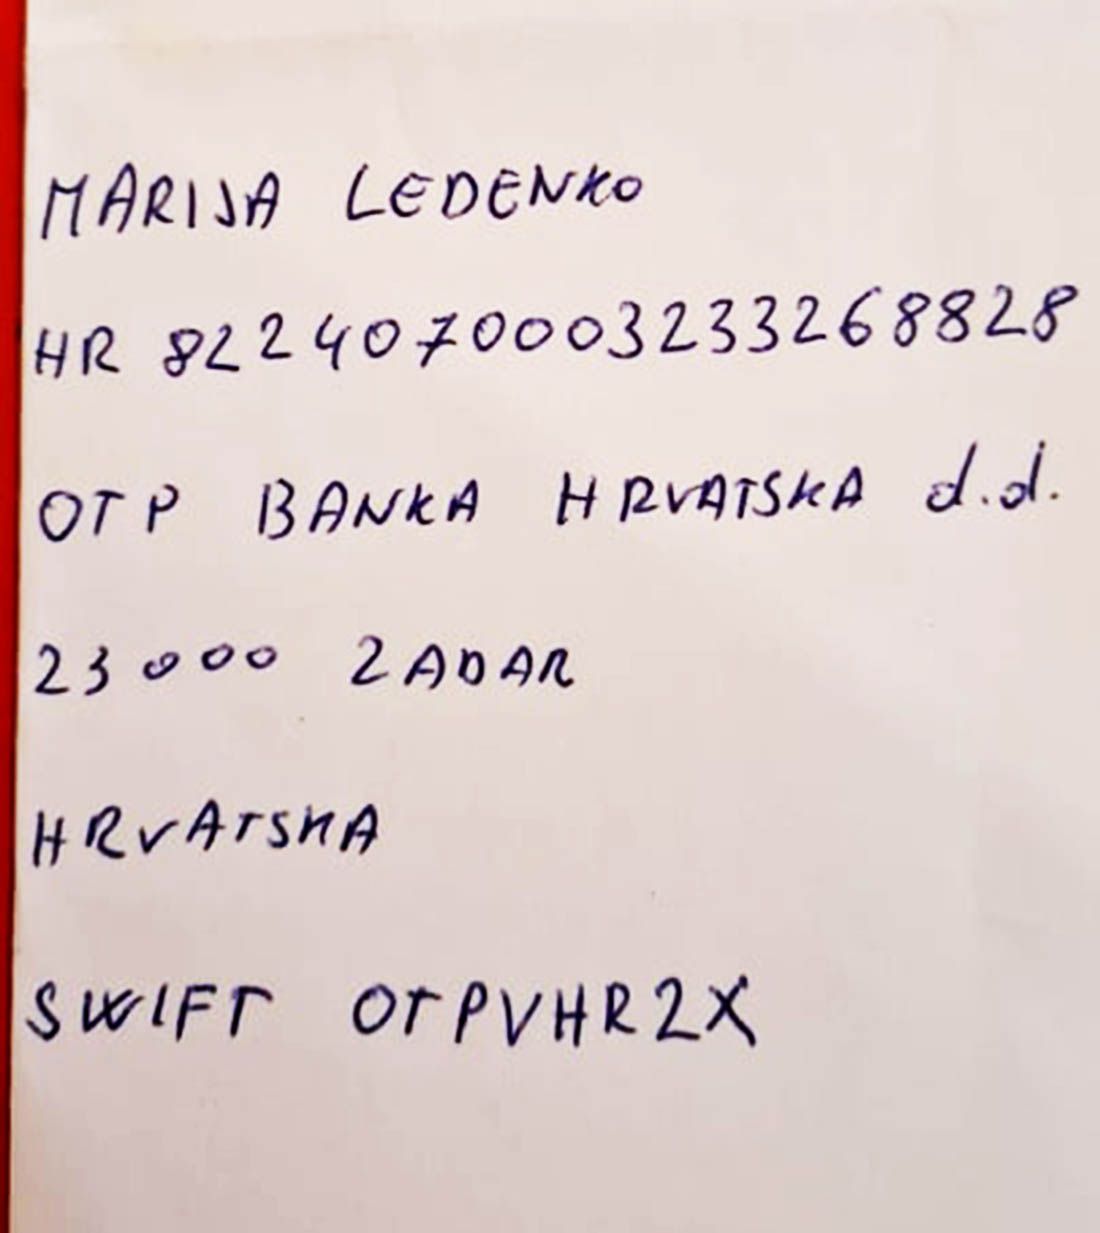 MARIJA LEDENKO
HR 8224070003233268828
OTP BANKA HRVATSKA d.d.
23000 ZADAR
HRVATSKA
SWIFT OTPVHR2X